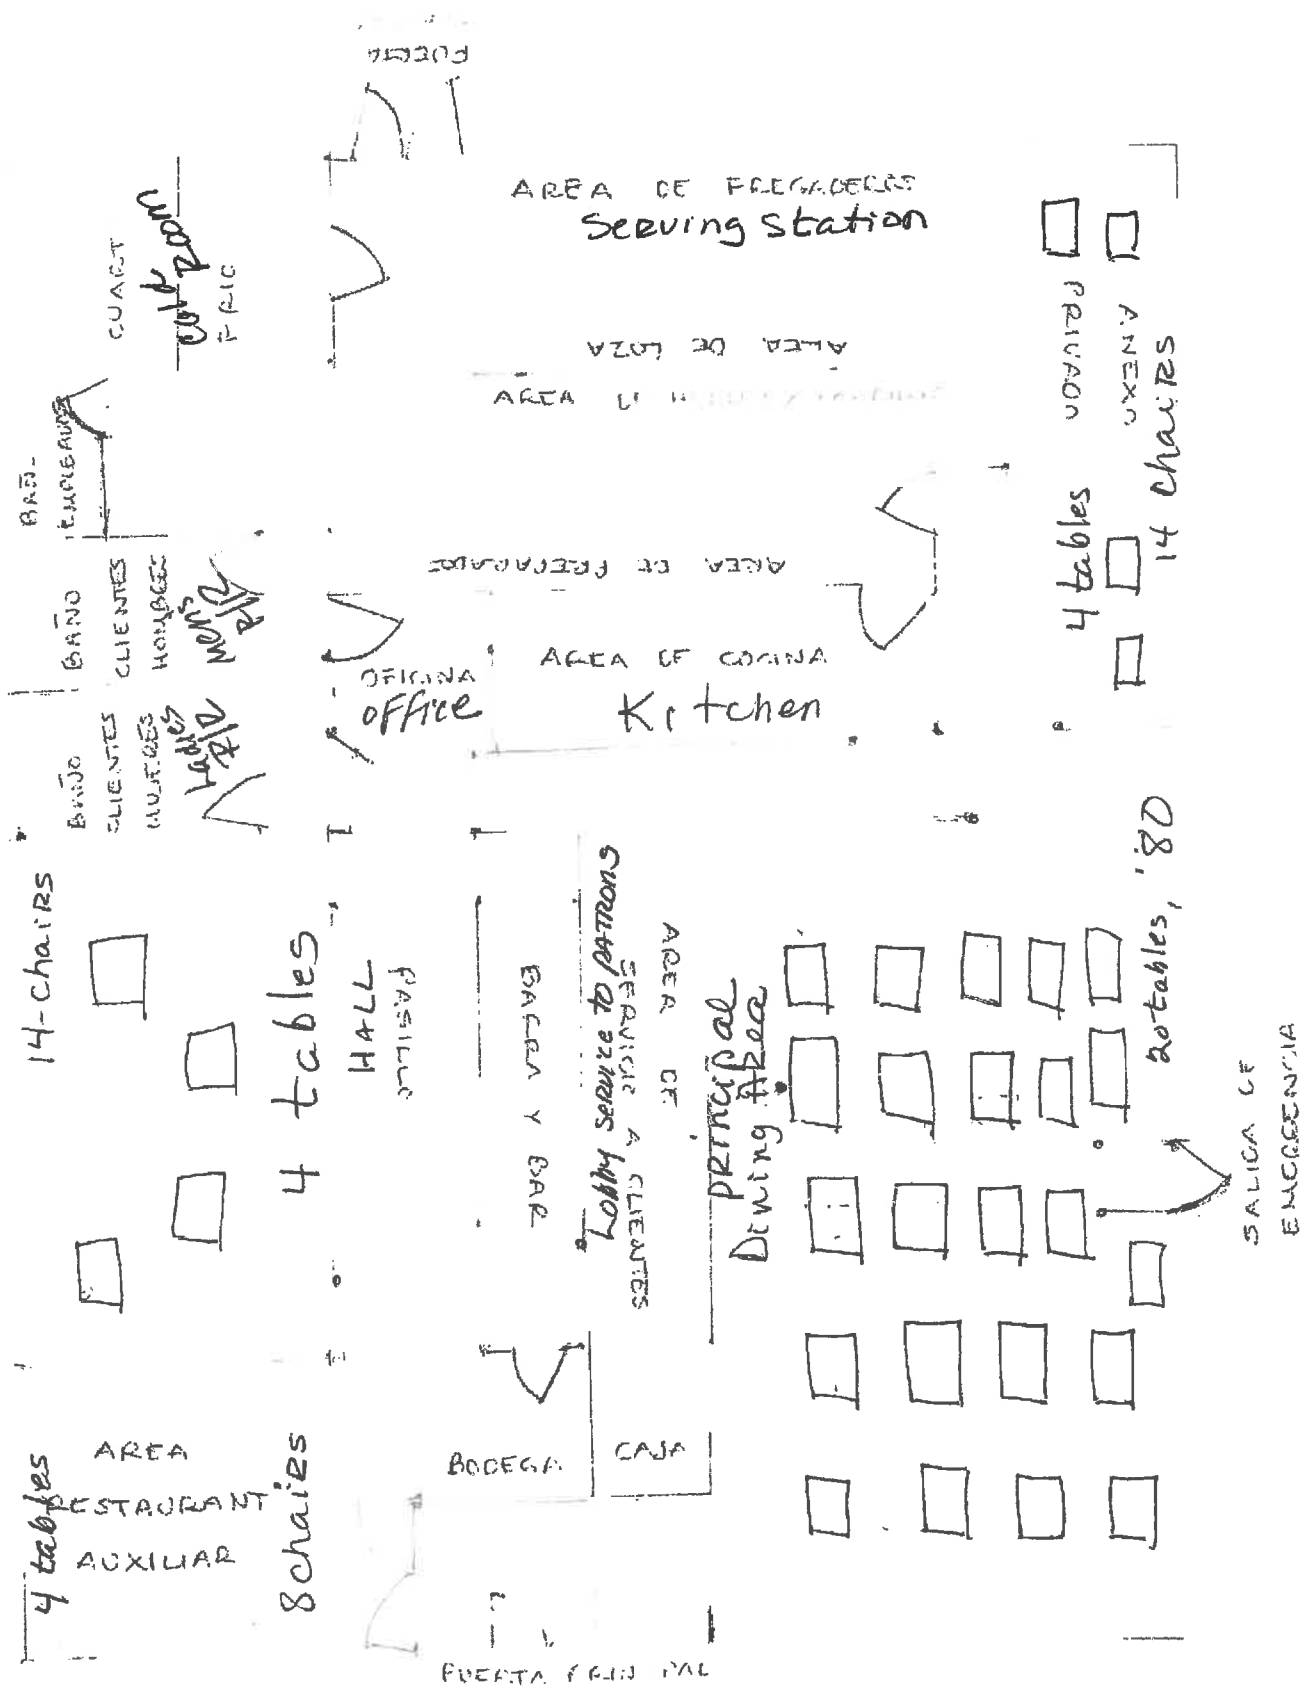 PUERTA
AREA DE FREGADEROS
Serving Station
CUART
Cold Room
FRIO
AREA DE LOZA
AREA
PRIVADO
ANEXO
4 tables
14 chairs
BAÑ-
EMPLEADOS
BAÑO
CLIENTES
HOMBRES
Mens
R/R
AREA DE PREPARADO
AREA DE COCINA
Kitchen
OFICINA
office
BAÑO
CLIENTES
MUJERES
Ladies
R/R
14-chaiRs
4 tables
HALL
PASILLO
BARRA Y BAR
Lobby Service to PATRONS
AREA DE
SERVICIO A CLIENTES
PRINCIPAL
Dining Area
20 tables, '80
SALIDA DE
EMERGENCIA
4 tables
AREA
RESTAURANT
AUXILIAR
8 chairs
BODEGA
CAJA
PUERTA PRIN PAL